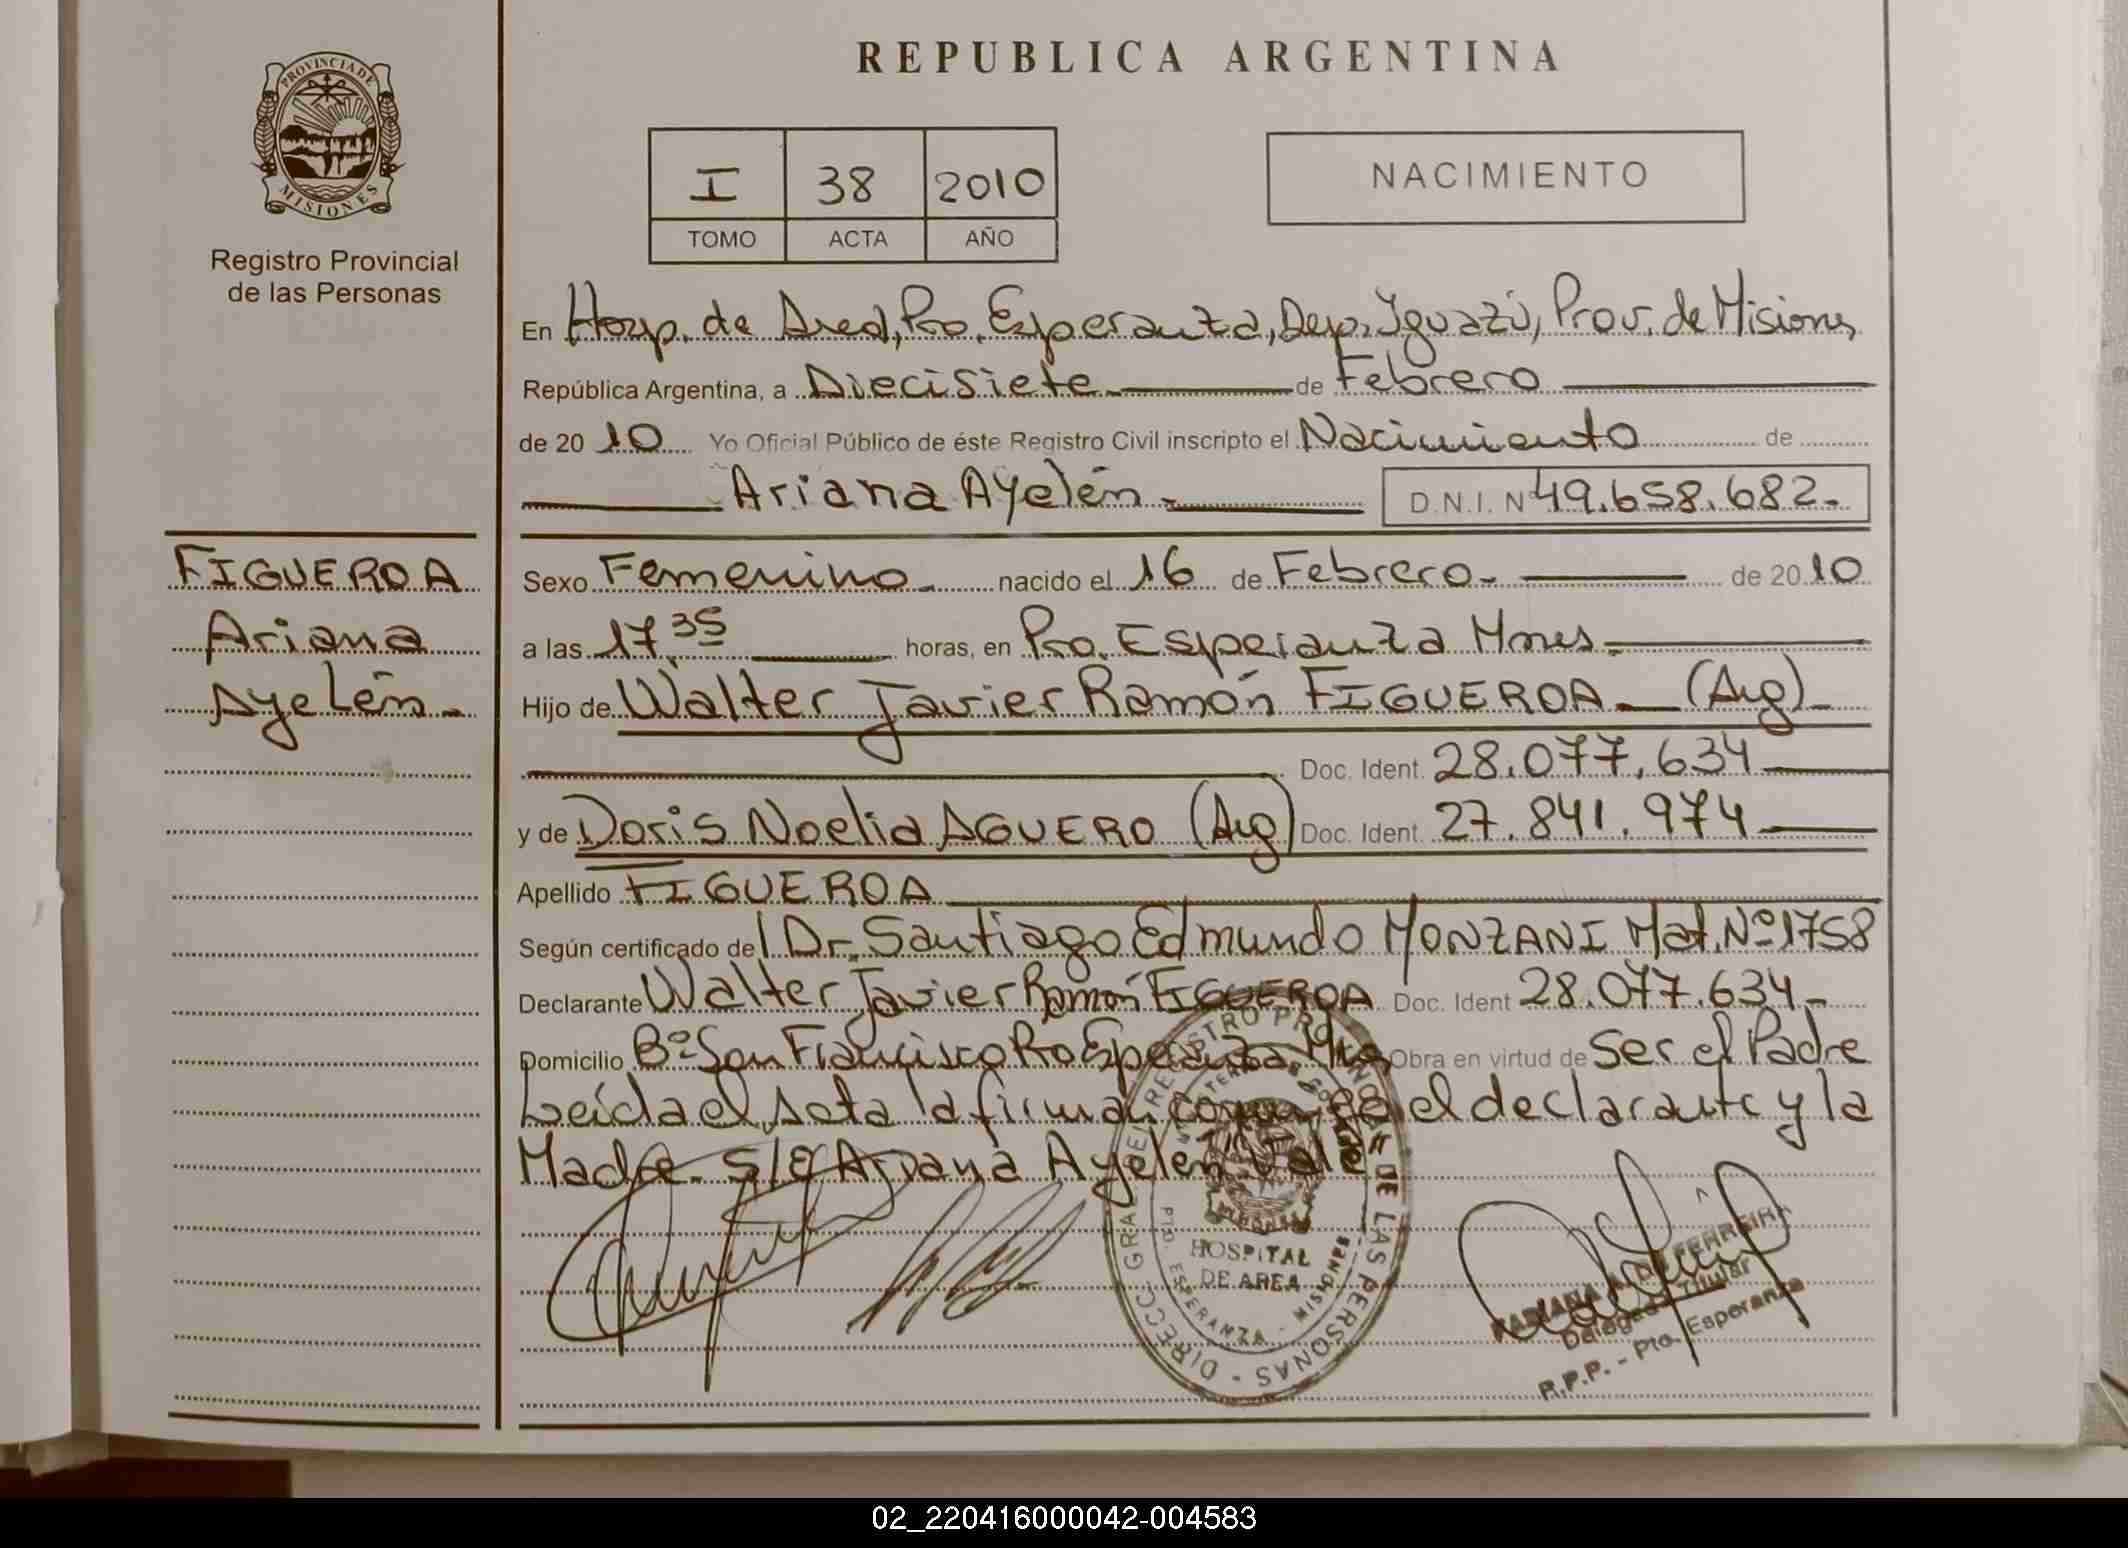 REPUBLICA ARGENTINA
PROVINCIA DE
MISIONES
Registro Provincial
de las Personas
I 38 2010
TOMO ACTA AÑO
NACIMIENTO
En Hosp. de Area, Pto. Esperanza, Dep. Iguazú, Prov. de Misiones
República Argentina, a Diecisiete de Febrero
de 2010 Yo Oficial Público de éste Registro Civil inscripto el Nacimiento de
Ariana Ayelén.- D.N.I. Nº 49.658.682.-
FIGUEROA
Ariana
Ayelén.-
Sexo Femenino.- nacido el 16 de Febrero.- de 2010
a las 17.35 horas, en Pto. Esperanza Mnes.-
Hijo de Walter Javier Ramón FIGUEROA.- (Arg).-
Doc. Ident. 28.077.634
y de Doris Noelia AGUERO (Arg) Doc. Ident. 27.841.974
Apellido FIGUEROA
Según certificado del Dr. Santiago Edmundo MONZANI Mat. Nº 1758
Declarante Walter Javier Ramón FIGUEROA Doc. Ident 28.077.634.-
Domicilio Bº San Francisco Pto Esperanza Obra en virtud de Ser el Padre
Leída el Acta la firman el declarante y la
Madre. S/B Ariana Ayelén Vale
HOSPITAL
DE AREA
PTO. ESPERANZA - MISIONES
DIRECC. GRAL. DEL REGISTRO PROVINCIAL DE LAS PERSONAS
FERREIRA
Delegada Titular
R.P.P. - Pto. Esperanza
02_220416000042-004583